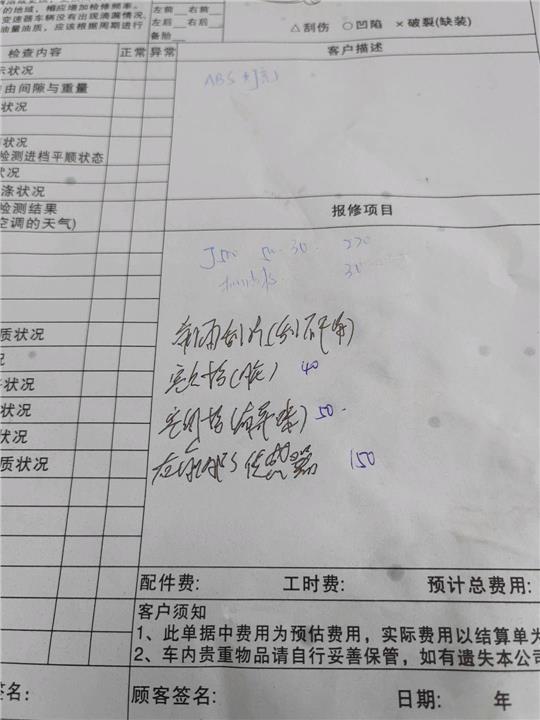 的地域，相应增加检修频率。
变速器车辆没有出现滴漏情况，
油量油质，应该根据周期进行
左前 右前
左后 右后
备胎
△刮伤 ○凹陷 ×破裂(缺装)
检查内容 正常 异常 客户描述
示状况
由间隙与重量
状况
状况
检测进档平顺状态
状况
涤状况
检测结果
空调的天气)
ABS 灯亮
报修项目
J500 50 30 220
30
质状况
况
状况
状况
状况
质状况
空气格 40
空调格 50
ABS 传感器 150
配件费: 工时费: 预计总费用:
客户须知
1、此单据中费用为预估费用，实际费用以结算单为
2、车内贵重物品请自行妥善保管，如有遗失本公司
签名: 顾客签名: 日期: 年